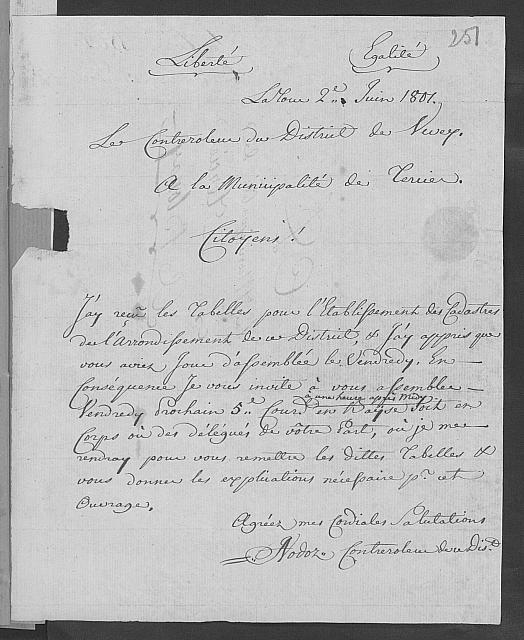 251
Liberté Egalité
LaTour 2.e Juin 1801.
Le Controleur du District de Vevey.
A la Municipalité de
Citoyens!
J'ay reçu les Tabelles pour l'Etablissement des Cadastres
de l'Arrondissement de ce District, & J'ay appris que
vous aviez Jour d'assemblée le Vendredy. En
Conséquence Je vous invite à vous assemblée
à une heure après Midy
Vendredy prochain 5.e Cour.t en soit en
Corps où des délégués de vôtre Part, où je me
rendray pour vous remettre les dittes Tabelles &
vous donner les explications nécessaire p.r cet
Ouvrage.
Agréez mes Cordiales Salutations
Nodoz Controleur de ce Dis.t